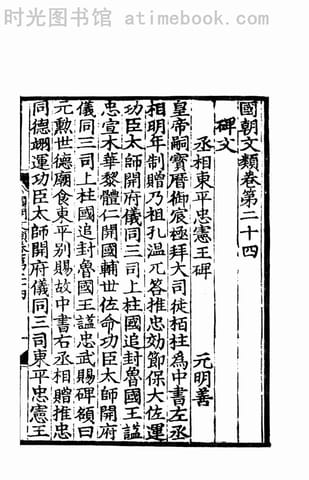 时光图书馆 - atimebook.com
國朝文類卷第二十四
碑文
丞相東平忠憲王碑 元明善
皇帝嗣寶曆御宸極拜大司徒栢柱為中書左丞
相明年制贈乃祖孔溫兀荅推忠効節保大佐運
功臣太師開府儀同三司上柱國追封魯國王謚
忠宣木華黎體仁開國輔世佐命功臣太師開府
儀同三司上柱國追封魯國王謚忠武賜碑額曰
元勲世德廟食東平別賜故中書右丞相贈推忠
同德翊運功臣太師開府儀同三司東平忠憲王